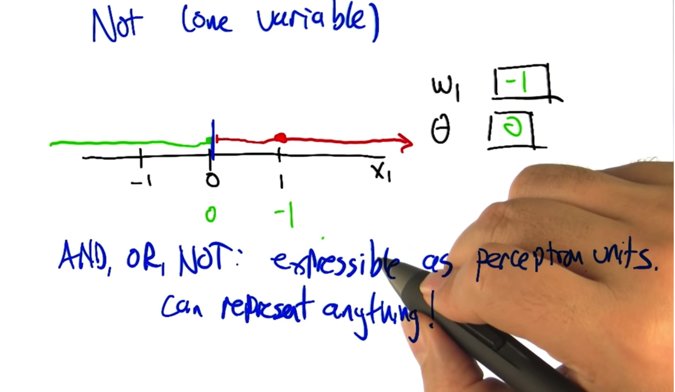 Not (one variable)
w₁ -1
θ 0
-1 0 1 x₁
0 -1
AND, OR, NOT: expressible as perceptron units.
can represent anything!